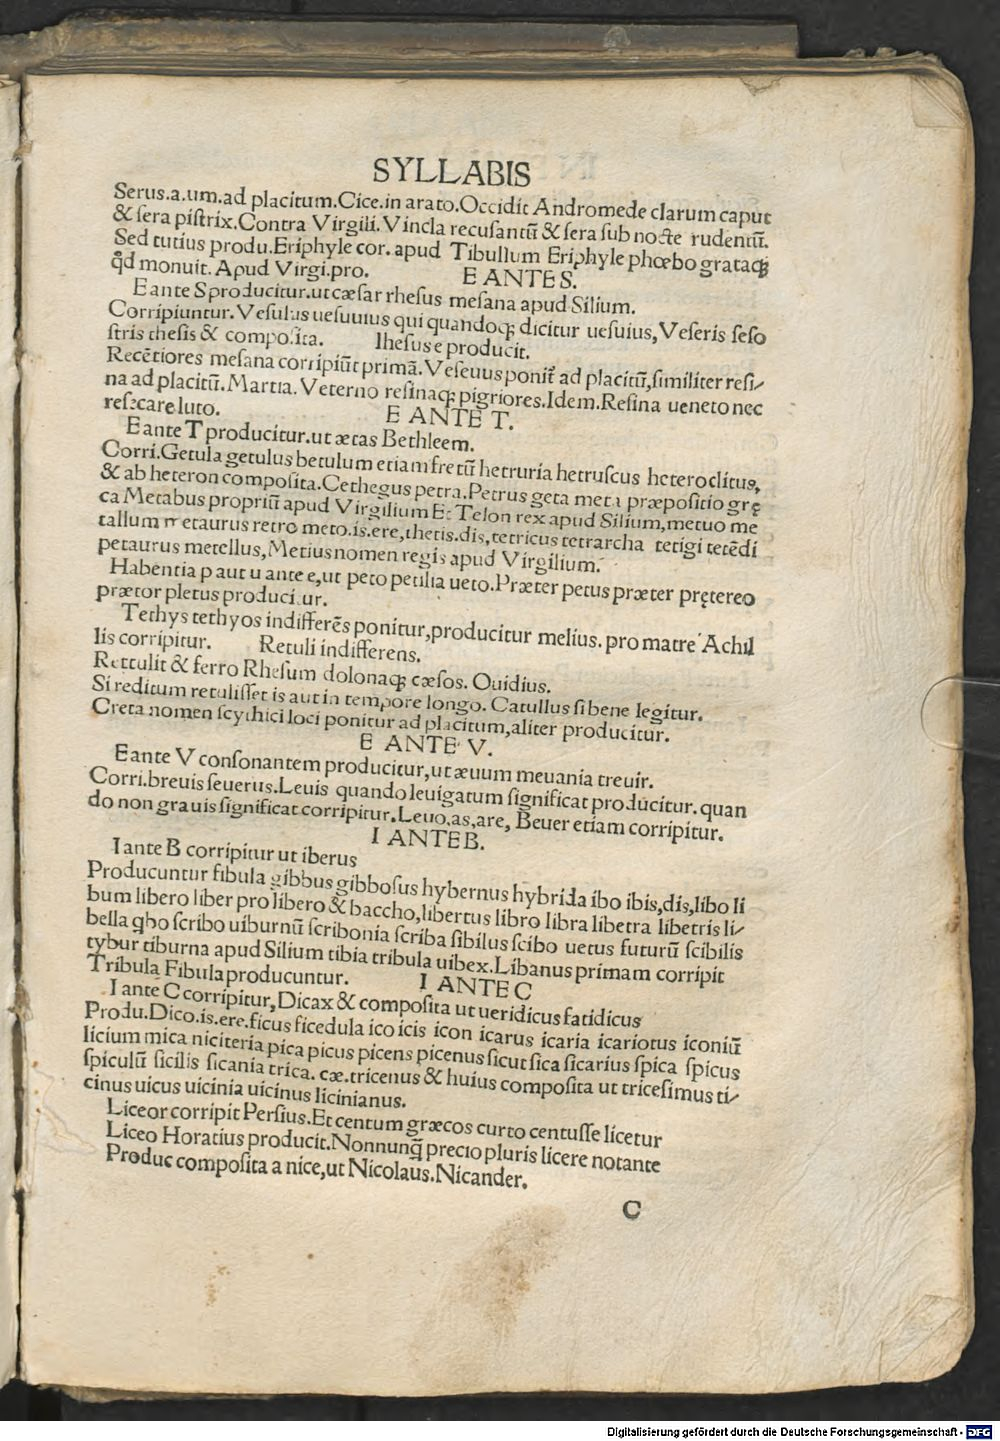 SYLLABIS
Serus.a.um.ad placitum.Cice.in arato.Occidit Andromede clarum caput
& ſera piſtrix.Contra Virgili.Vincla recuſantū & ſera ſub nocte rudentū.
Sed tutius produ.Eriphyle cor.apud Tibullum Eriphyle phœbo grataqꝫ
qd monuit. Apud Virgi.pro. E ANTE S.
E ante S producitur.ut cæſar rheſus meſana apud Silium.
Corripiuntur.Veſulus ueſuuius qui quandoqꝫ dicitur ueſuius, Veſeris ſeſo
ſtris theſis & compoſita. Iheſus e producit.
Recētiores meſana corripiūt primā.Veſeuus ponit ad placitū,ſimiliter reſi-
na ad placitū.Martia.Veterno reſinaqꝫ pigriores.Idem.Reſina ueneto nec
reſecare luto. E ANTE T.
E ante T producitur.ut ætas Bethleem.
Corri.Getula getulus betulum etiam fretū hetruria hetruſcus heteroclitus,
& ab heteron compoſita.Cethegus petra.Petrus geta meta præpoſitio gre
ca Metabus propriū apud Virgilium Et Telon rex apud Silium,metuo me
tallum metaurus retro meto.is.ere,thetis.dis,tetricus tetrarcha tetigi tetēdi
petaurus metellus,Metius nomen regis apud Virgilium.
Habentia p aut u ante e,ut peto petilia ueto.Præter petus præter prętereo
prætor pletus producitur.
Tethys tethyos indifferēs ponitur,producitur melius.pro matre Achil
lis corripitur. Retuli indifferens.
Rettulit & ferro Rheſum dolonaqꝫ cæſos. Ouidius.
Si reditum retuliſſet is aut in tempore longo. Catullus ſi bene legitur.
Creta nomen ſcythici loci ponitur ad placitum,aliter producitur.
E ANTE V.
E ante V conſonantem producitur,ut æuum meuania treuir.
Corri.breuis ſeuerus.Leuis quando leuigatum ſignificat producitur.quan
do non grauis ſignificat corripitur.Leuo.as.are, Beuer etiam corripitur.
I ANTE B.
I ante B corripitur ut iberus
Producuntur fibula gibbus gibboſus hybernus hybrida ibo ibis,dis,libo li
bum libero liber pro libero & baccho,libertus libro libra libetra libetris li-
bella qbo ſcribo uiburnū ſcribonia ſcriba ſibilus ſcibo uetus futurū ſcibilis
tybur tiburna apud Silium tibia tribula uibex.Libanus primam corripit
Tribula Fibula producuntur. I ANTE C
I ante C corripitur, Dicax & compoſita ut ueridicus fatidicus
Produ.Dico.is.ere.ficus ficedula ico icis icon icarus icaria icariotus iconiū
licium mica niciteria pica picus picens picenus ſicut ſica ſicarius ſpica ſpicus
ſpiculū ſicilis ſicania trica.cæ.tricenus & huius compoſita ut triceſimus ti-
cinus uicus uicinia uicinus licinianus.
Liceor corripit Perſius.Et centum græcos curto centuſſe licetur
Liceo Horatius producit.Nonnunq̄ precio pluris licere notante
Produc compoſita a nice,ut Nicolaus.Nicander.
C
Digitalisierung gefördert durch die Deutsche Forschungsgemeinschaft - DFG